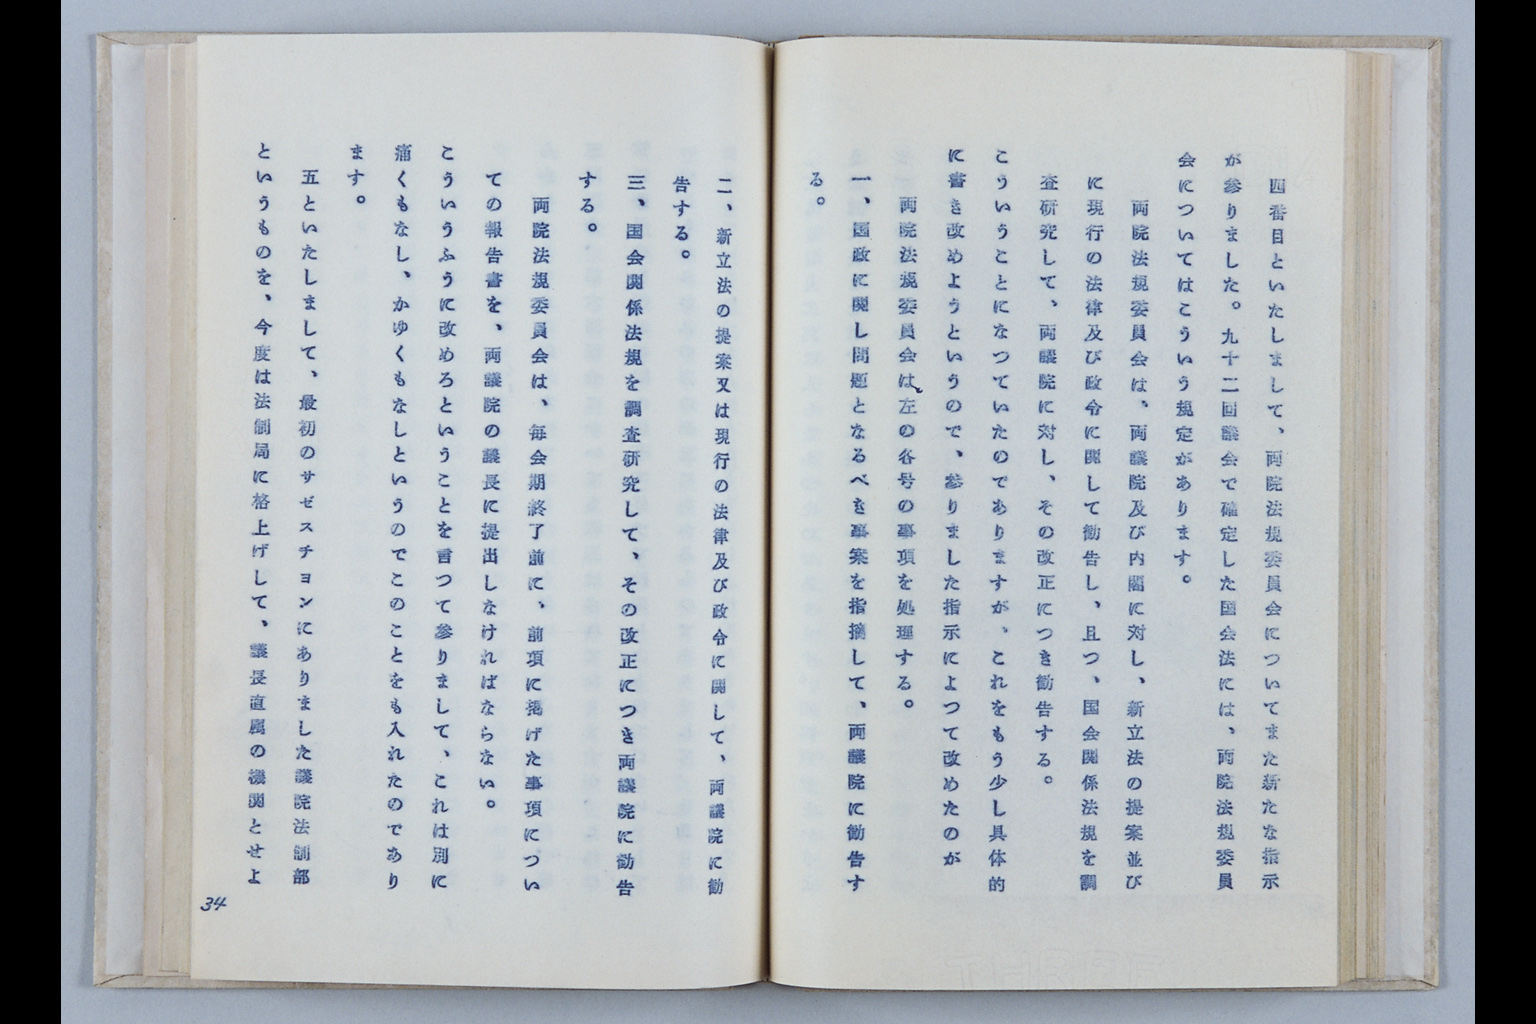 四番目といたしまして、両院法規委員会についてまた新たな指示
が参りました。九十二回議会で確定した国会法には、両院法規委員
会についてはこういう規定があります。
両院法規委員会は、両議院及び内閣に対し、新立法の提案並び
に現行の法律及び政令に関して勧告し、且つ、国会関係法規を調
査研究して、両議院に対し、その改正につき勧告する。
こういうことになつていたのでありますが、これをもう少し具体的
に書き改めようというので、参りました指示によつて改めたのが
両院法規委員会は左の各号の事項を処理する。
一、国政に関し問題となるべき事案を指摘して、両議院に勧告す
る。
二、新立法の提案又は現行の法律及び政令に関して、両議院に勧
告する。
三、国会関係法規を調査研究して、その改正につき両議院に勧告
する。
両院法規委員会は、毎会期終了前に、前項に掲げた事項につい
ての報告書を、両議院の議長に提出しなければならない。
こういうふうに改めろということを言つて参りまして、これは別に
痛くもなし、かゆくもなしというのでこのことをも入れたのであり
ます。
五といたしまして、最初のサゼスチョンにありました議院法制部
というものを、今度は法制局に格上げして、議長直属の機関とせよ
34